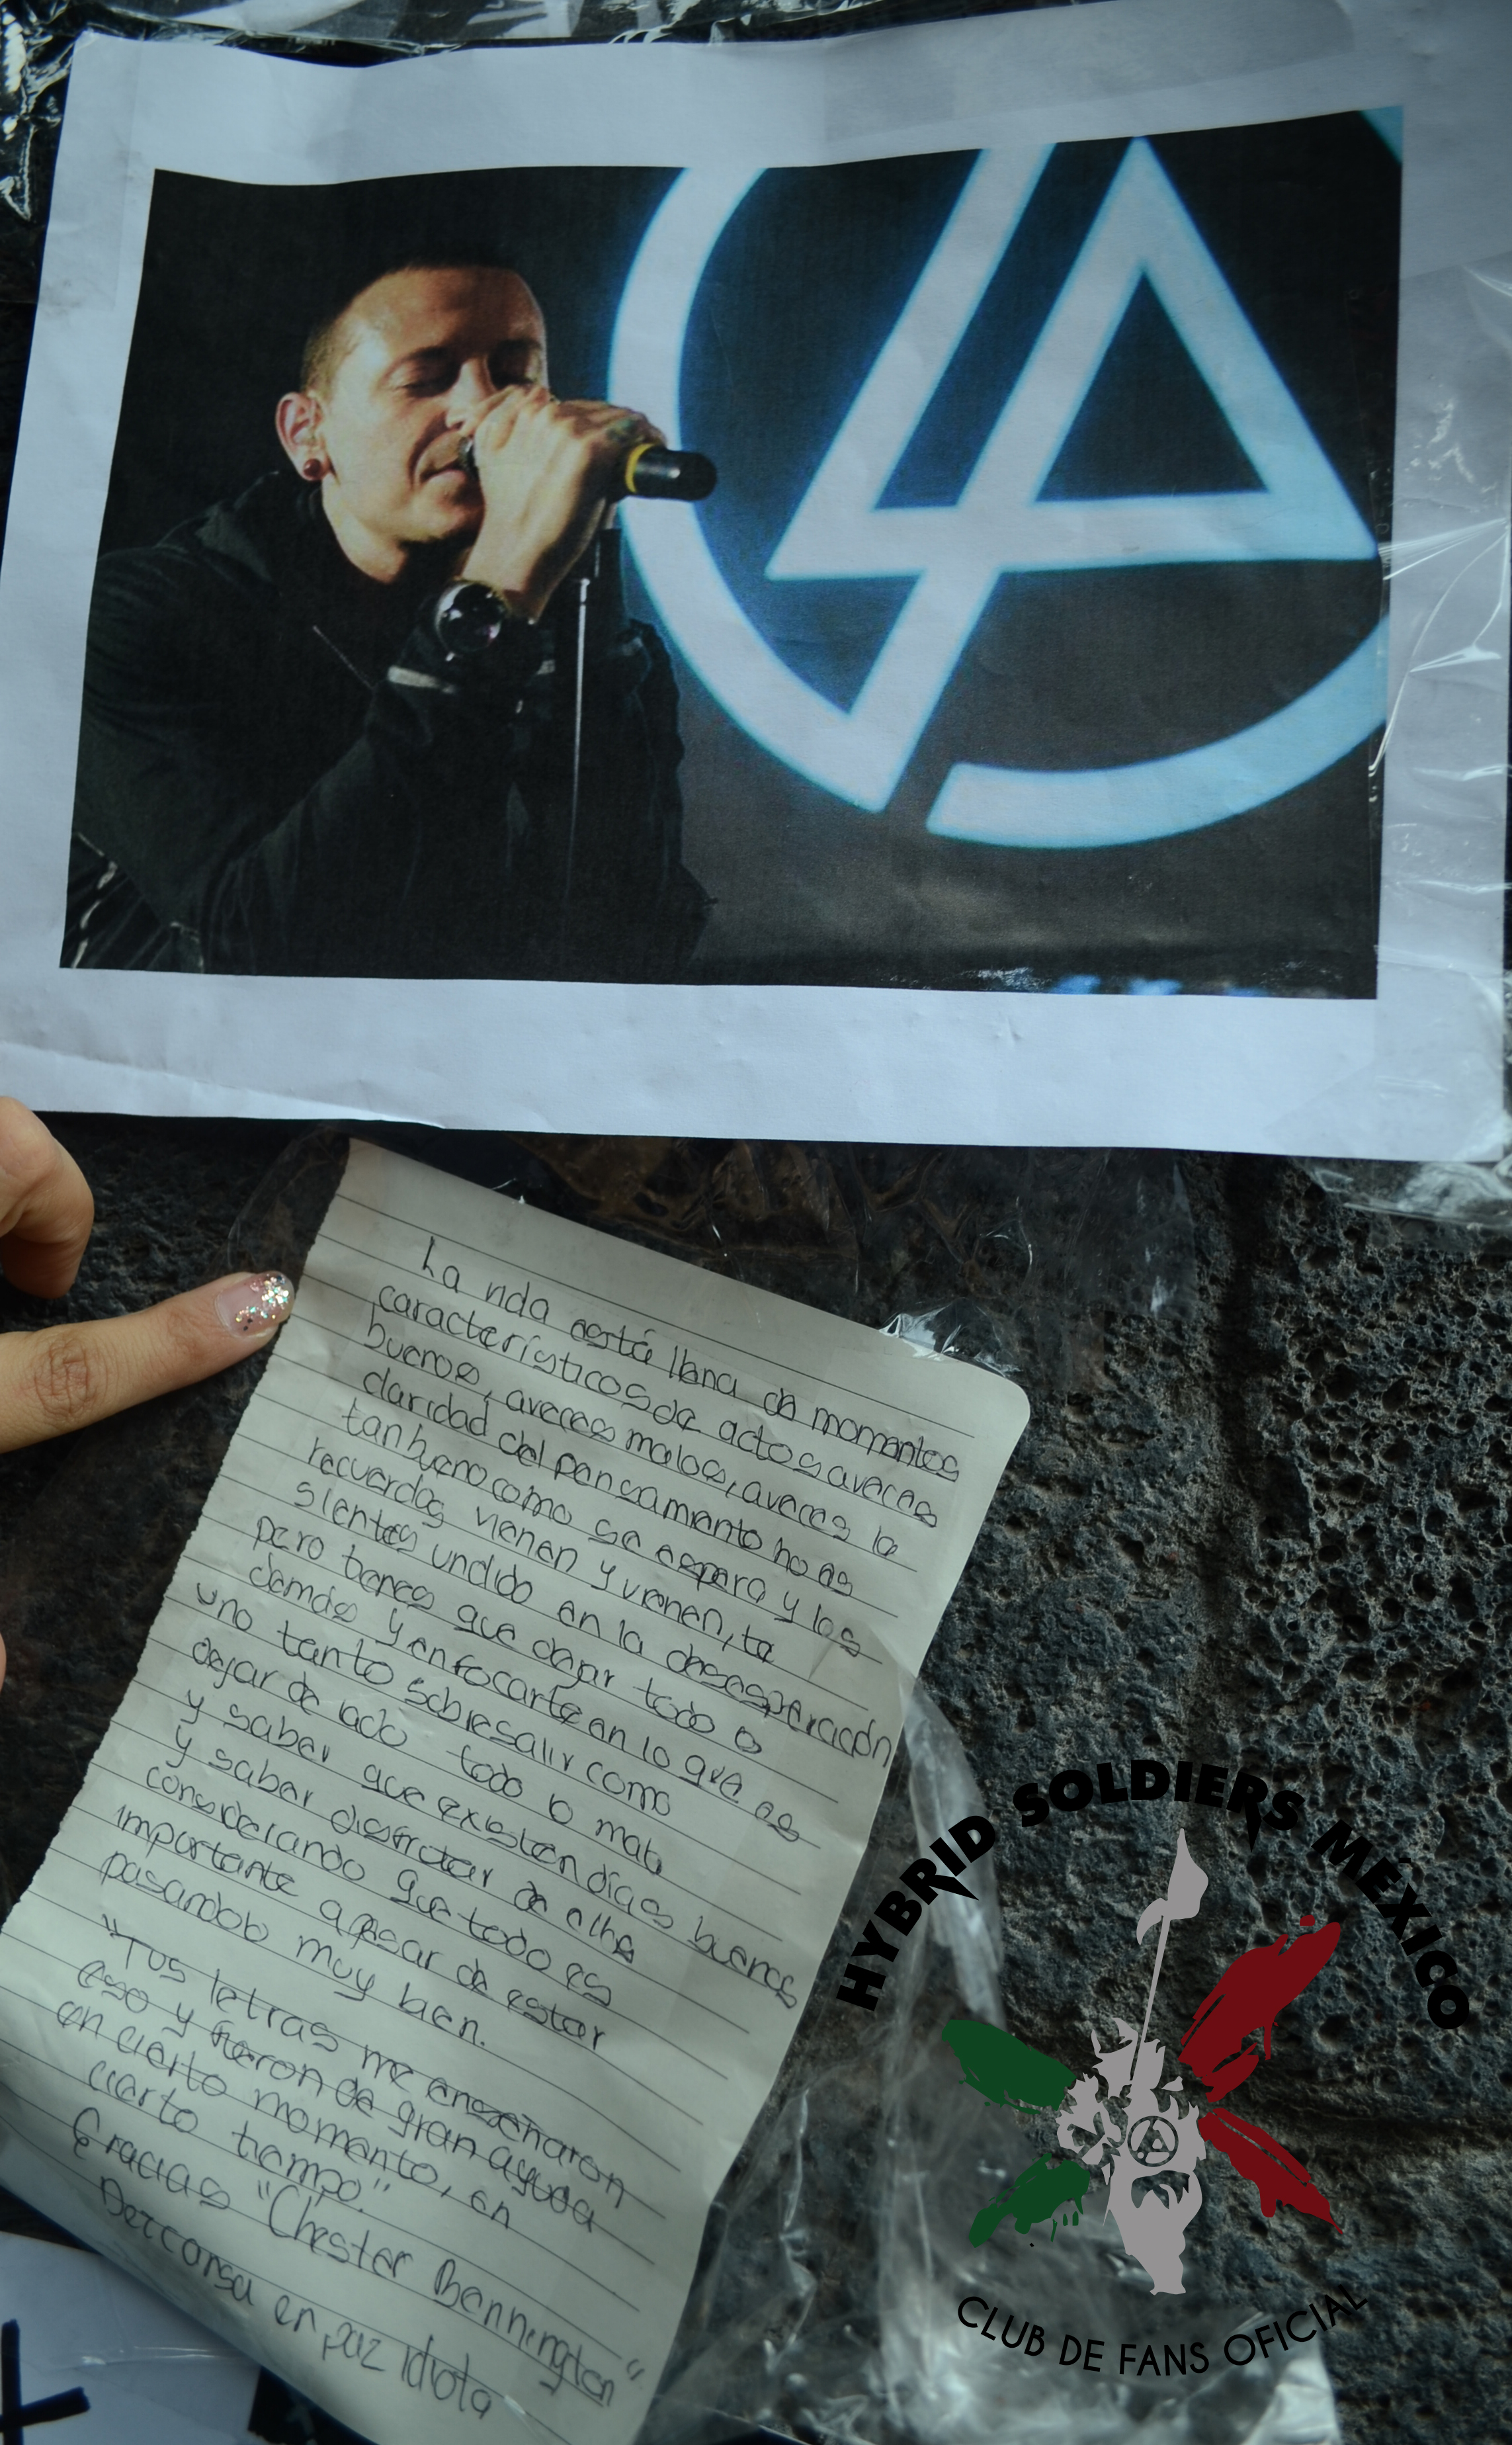 La vida está llena de momentos
característicos de actos aveces
buenos, aveces malos, aveces la
claridad del pensamiento no es
tan bueno como se espera y los
recuerdos vienen y vienen, te
sientes undido en la desesperación
pero tienes que dejar todo lo
demás y enfocarte en lo que es
uno tanto sobresalir como
dejar de lado todo lo malo
y saber que existen días buenos
y saber disfrutar de ellos
considerando que todo es
importante apesar de estar
pasandolo muy bien.
"Tus letras me enseñaron
eso y fueron de gran ayuda
en cierto momento, en
cierto tiempo."
Gracias "Chester Bennington"
Descansa en paz Idiota
HYBRID SOLDIERS MÉXICO
CLUB DE FANS OFICIAL